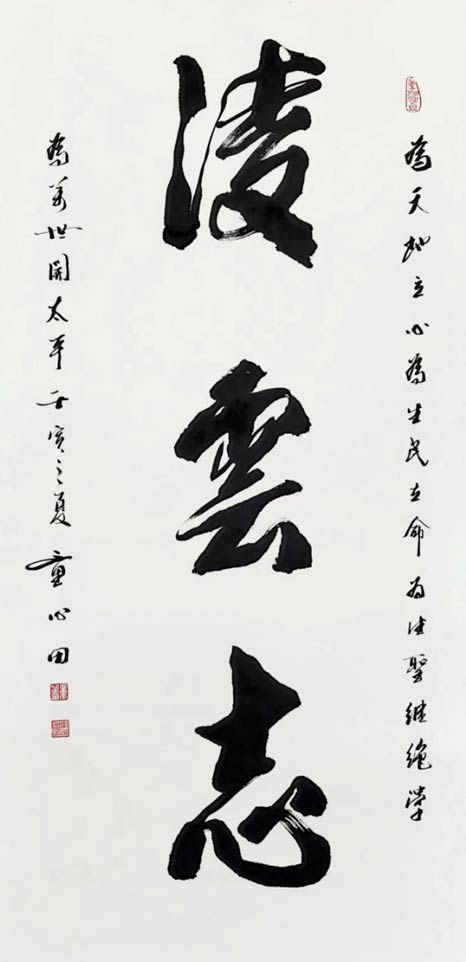 為天地立心為生民立命為往聖继絕學
凌雲志
為萬世開太平壬寅之夏童心田